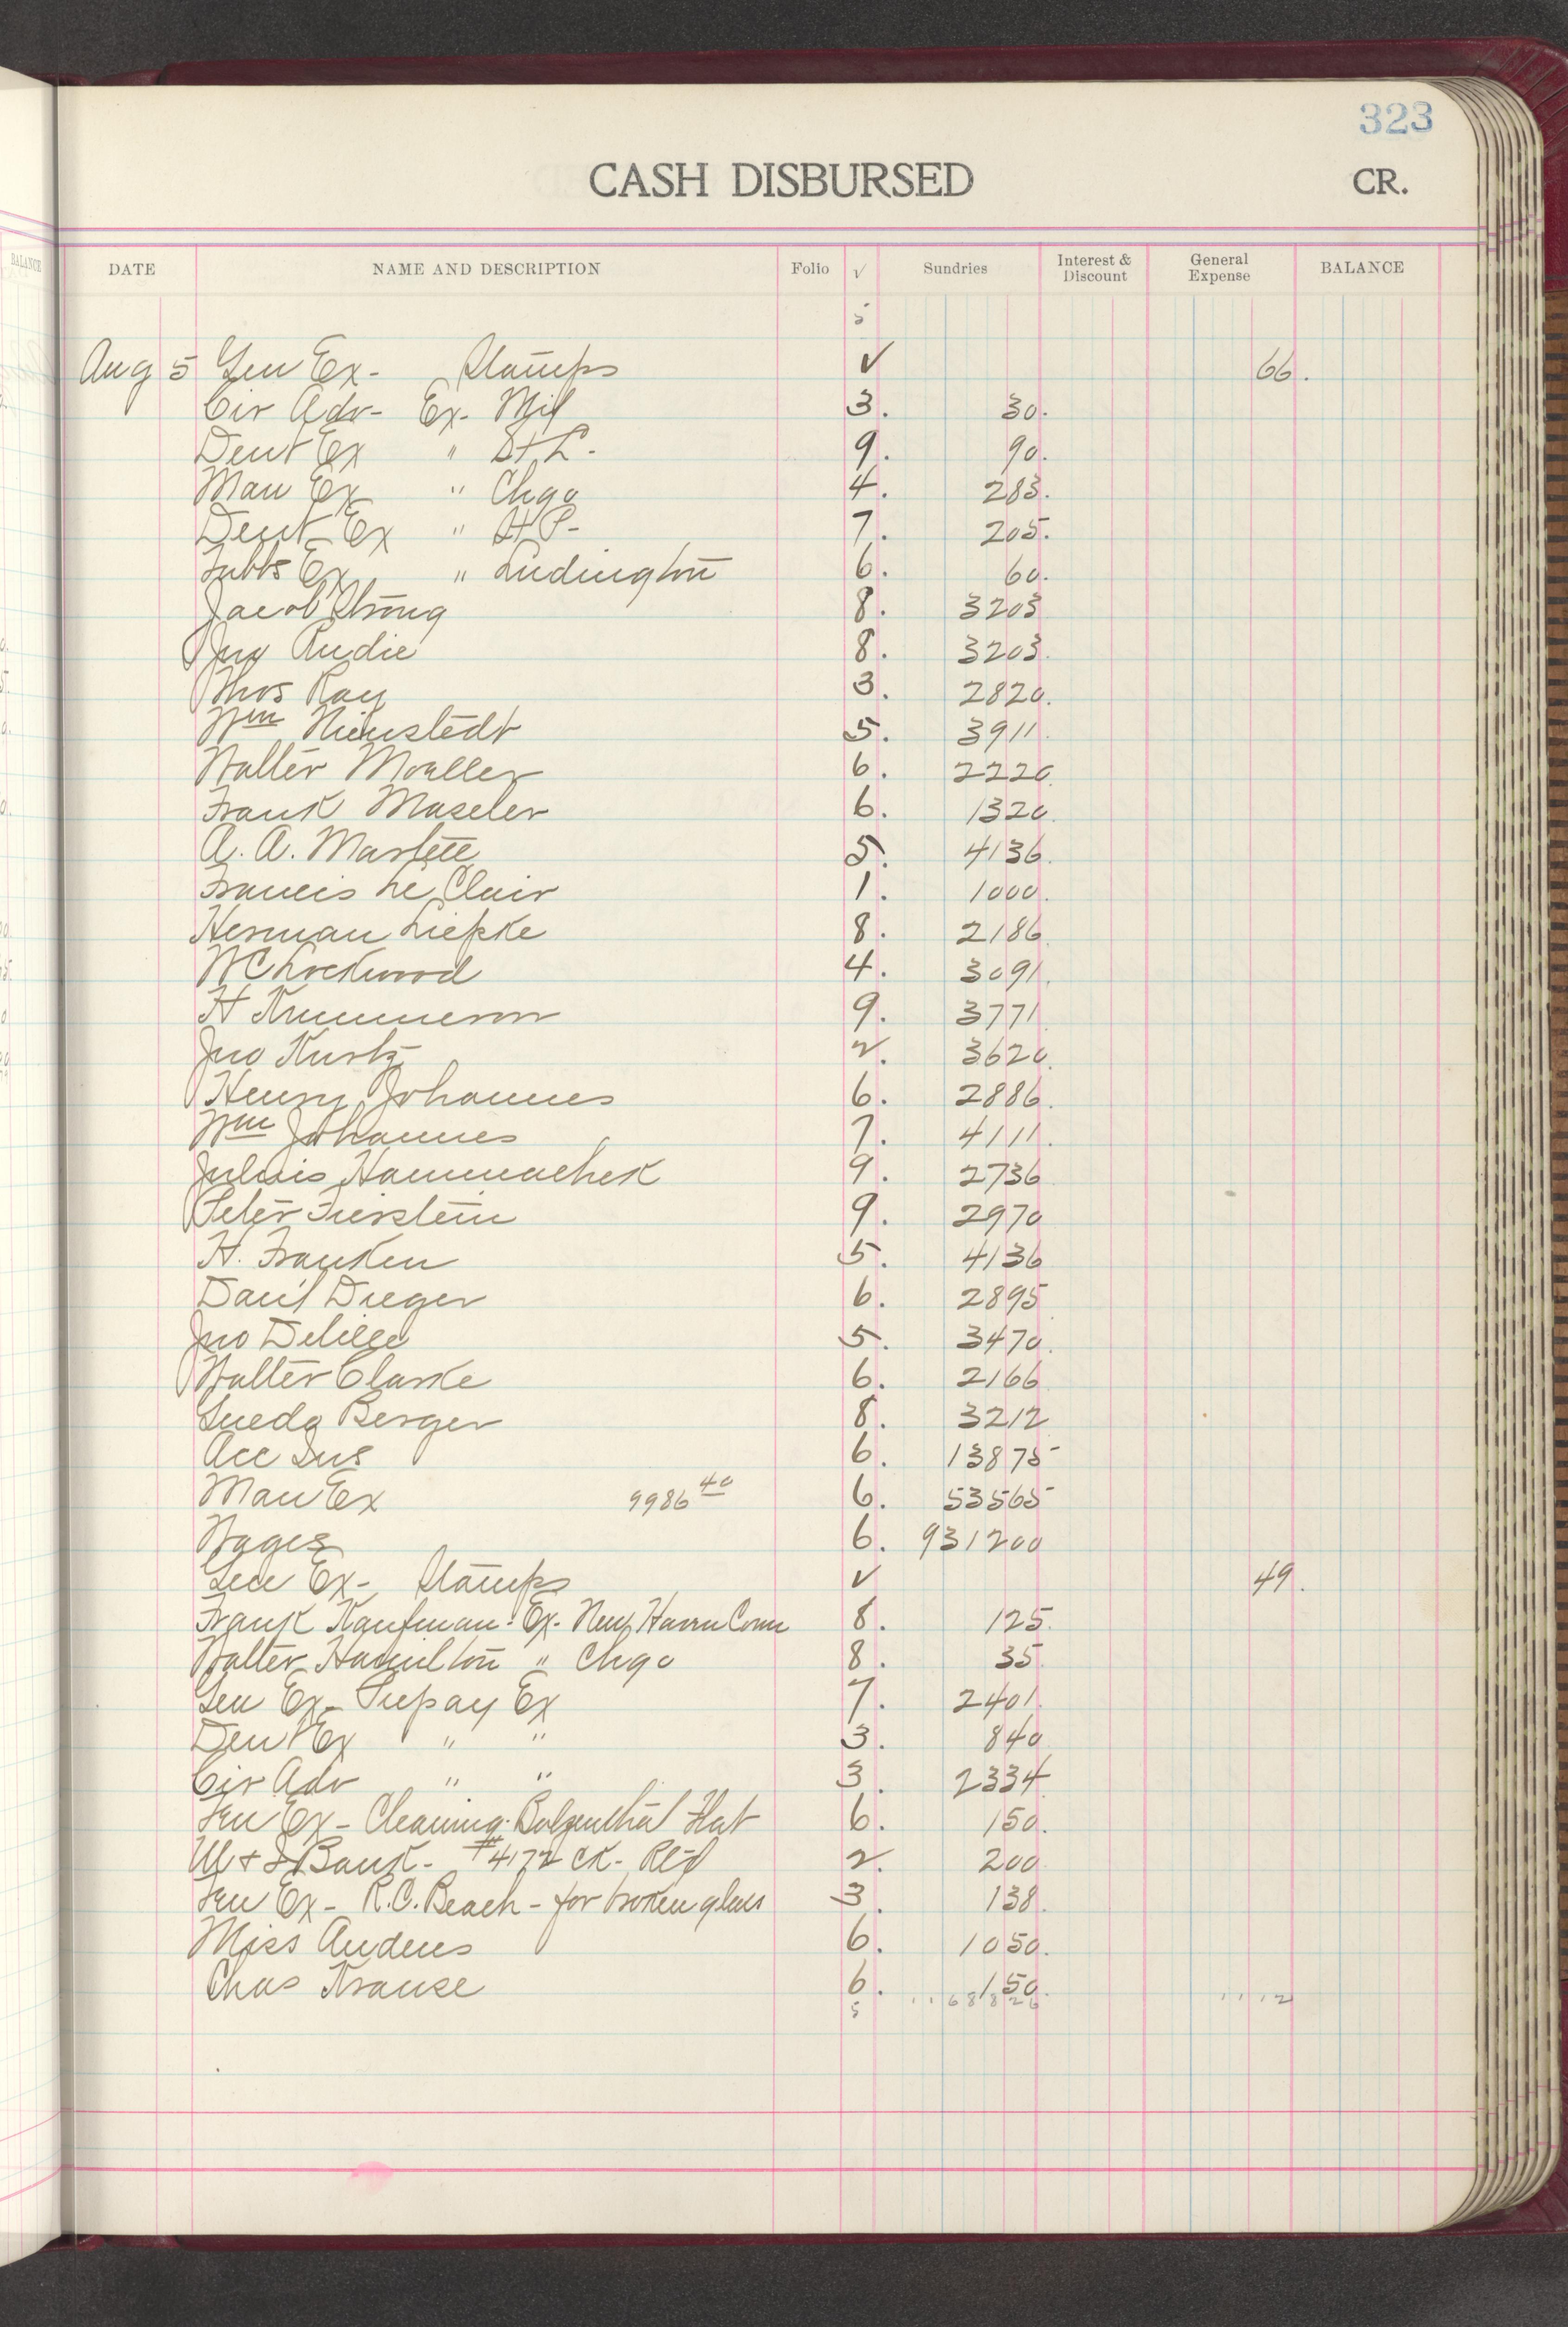 323
CASH DISBURSED CR.
BALANCE DATE NAME AND DESCRIPTION Folio √ Sundries Interest & Discount General Expense BALANCE
5
Aug 5 Gen Ex - Stamps √ 66.
Cir Adv - Ex - Mil 3. 30.
Dent Ex " St L - 9. 90.
Man Ex " Chgo 4. 283.
Dent Ex " St P - 7. 205.
Tubbs Ex " Ludington 6. 60.
Jacob Strong 8. 3203
Jno Rudie 8. 3203.
Thos Ray 3. 2820.
Wm Nienstedt 5. 3911.
Walter Moeller 6. 2220.
Frank Maseler 6. 1320.
A. A. 5. 4136.
Francis Le Clair 1. 1000.
Herman Liepke 8. 2186.
W C Lockwood 4. 3091.
H 9. 3771
Jno Kurtz 2. 3620.
Henry Johannes 6. 2886.
Wm Johannes 7. 4111.
Julius Hammachek 9. 2736
Peter Fierstein 9. 2970
H. Franken 5. 4136
Dan'l Dreger 6. 2895
Jno Delille 5. 3470.
Walter Clarke 6. 2166
Berger 8. 3212
Acc Ins 6. 13875
Man Ex 9986 40 6. 53565
Wages 6. 931200
Gen Ex - Stamps √ 49.
Frank Kaufman - Ex - New Haven Conn 8. 125.
Walter Hamilton " Chgo 8. 35.
Gen Ex - Prepay Ex 7. 2401.
Dent Ex " " 3. 840
Cir Adv " " 3. 2334
Gen Ex - Cleaning Flat 6. 150.
Bank - #4172 ck - Ret'd 2. 200
Gen Ex - R. C. Beach - for broken glass 3. 138.
Miss Andens 6. 1050.
Chas Krause 6. 150.
5 1168826 1112